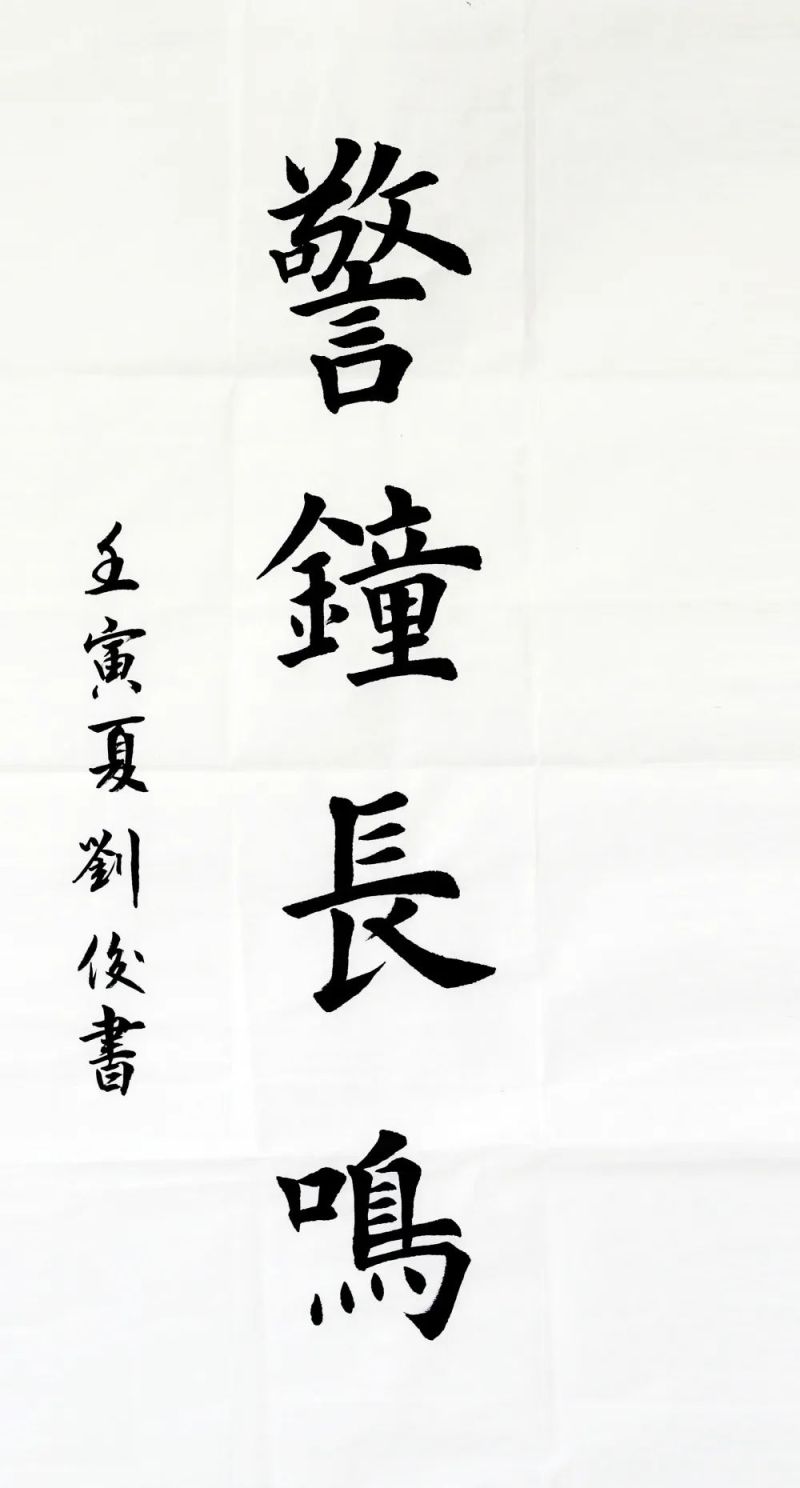 警鐘長鳴
壬寅夏劉俊書